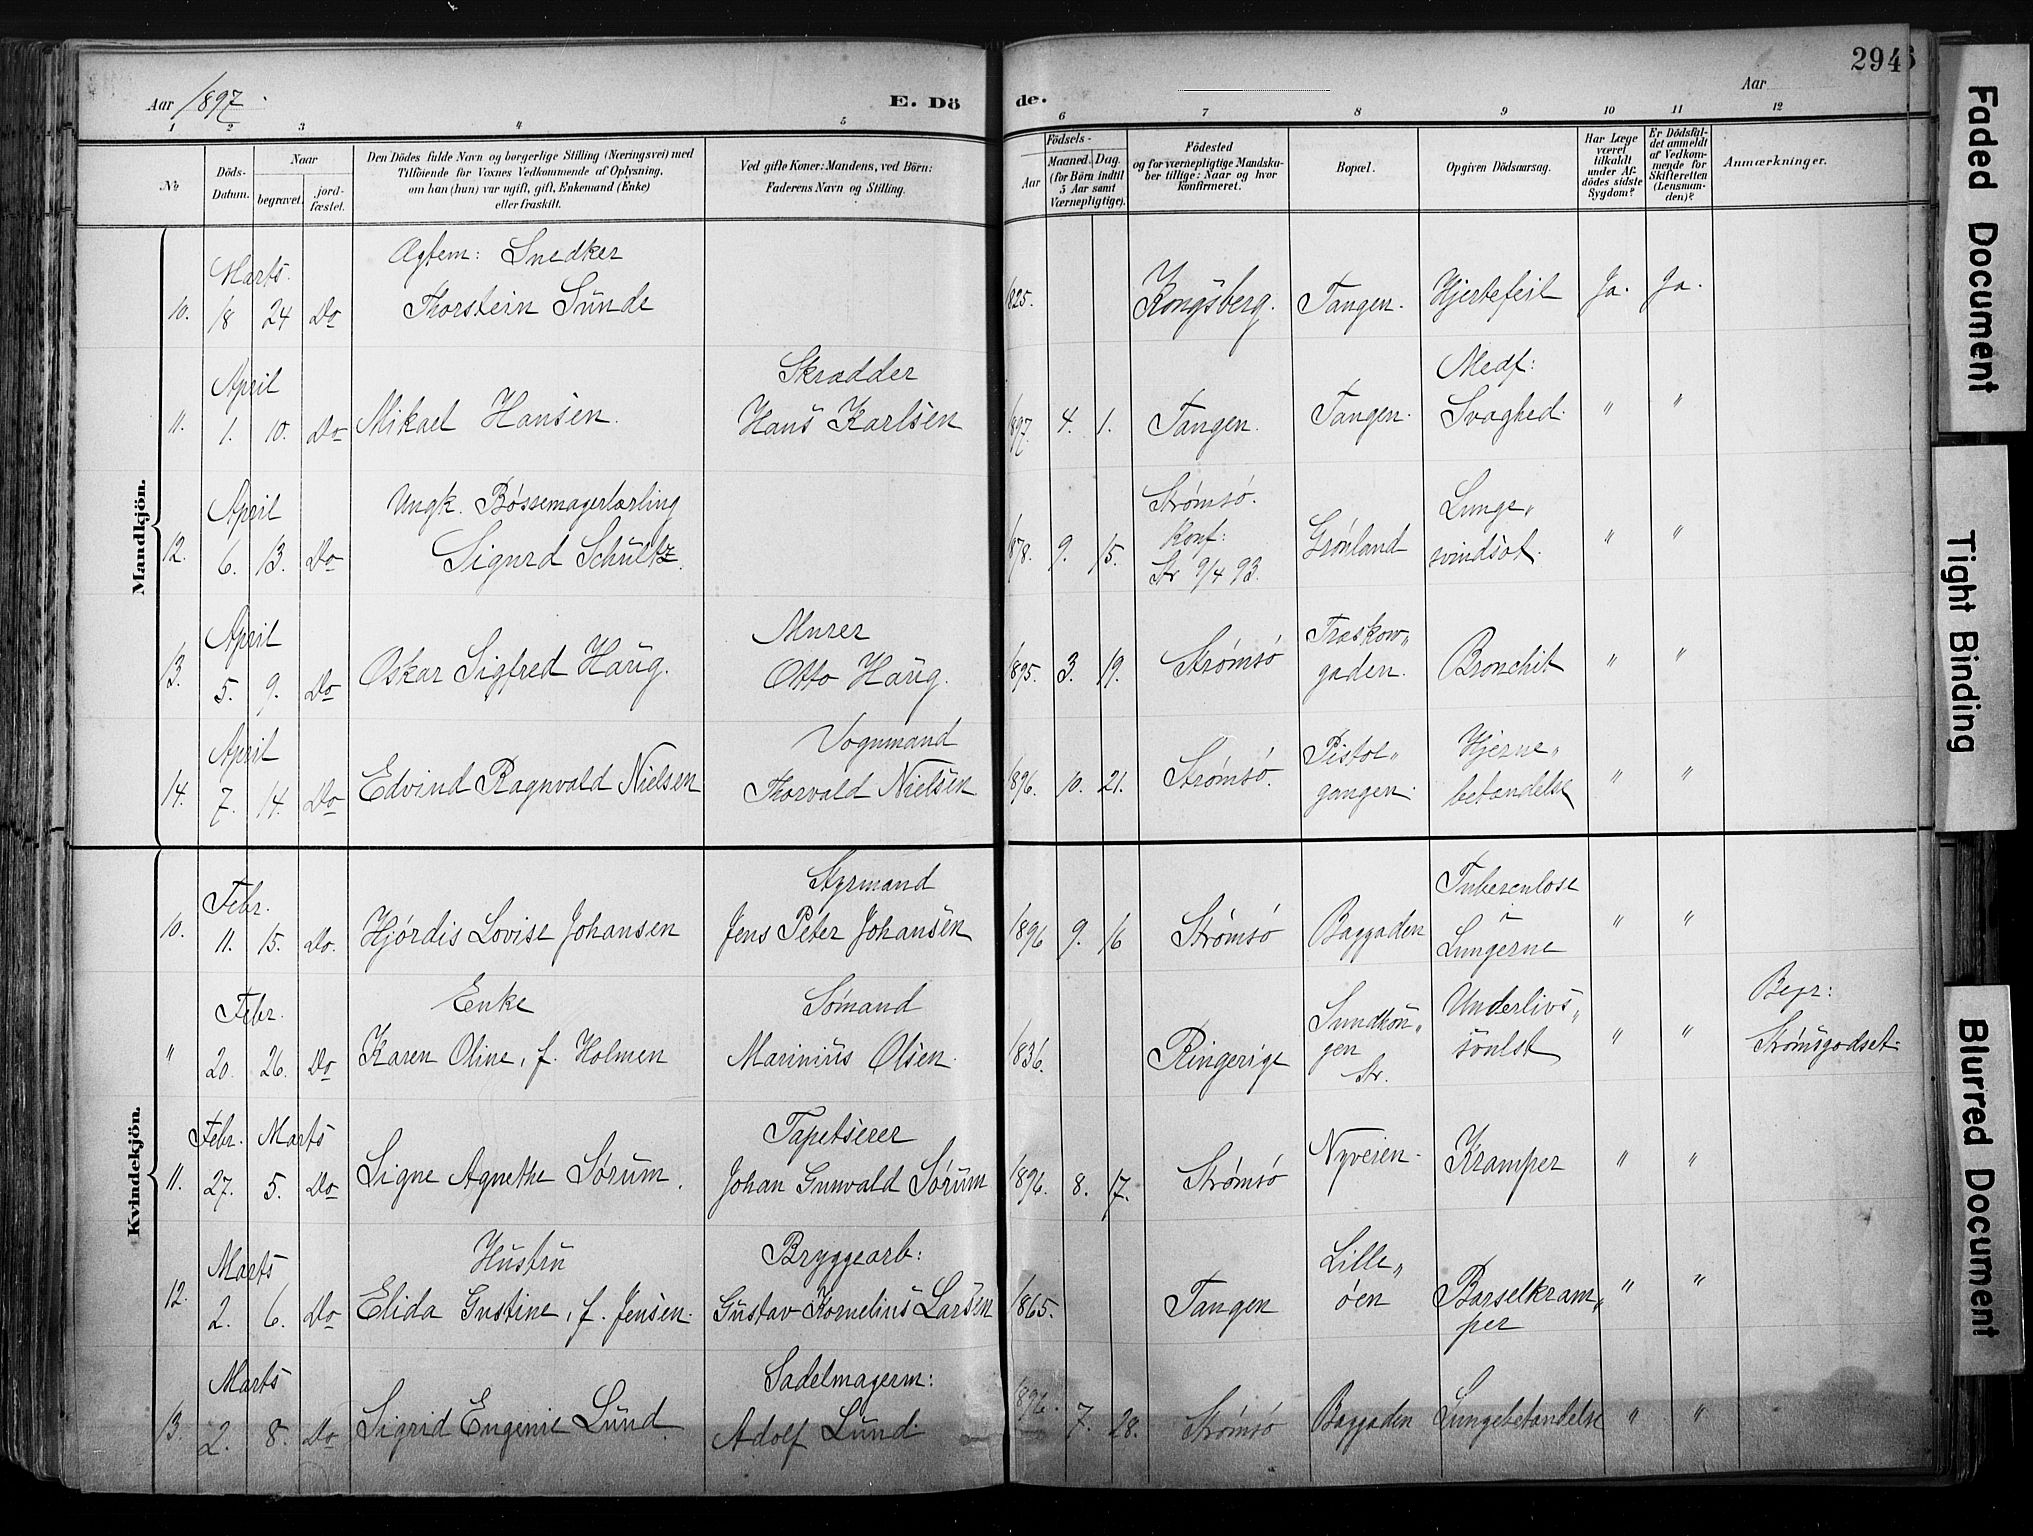 Aar 1897.
E. Dö
de.
Aar
294
1 2 3 4 5 6 7 8 9 10 11 12
No
Döds-
Datum.
Naar
begravet.
jord-
fæstet.
Den Dödes fulde Navn og borgerlige Stilling (Næringsvei) med
Tilföiende for Voxnes Vedkommende af Oplysning,
om han (hun) var ugift, gift, Enkemand (Enke)
eller fraskilt.
Ved gifte Koner: Mandens, ved Börn:
Faderens Navn og Stilling.
Födsels-
Aar
Maaned. Dag.
(for Börn indtil
5 Aar samt
Værnepligtige).
Födested
og for værnepligtige Mandska-
ber tillige: Naar og hvor
konfirmeret.
Bopæl.
Opgiven Dödsaarsag.
Har Læge
været
tilkaldt
under Af-
dödes sidste
Sygdom?
Er Dödsfal-
det anmeldt
af Vedkom-
mende for
Skifteretten
(Lensman-
den)?
Anmærkninger.
Mandkjön.
Marts. Ægtem: Snedker
10. 18 24 Do Thorstein Sunde 1825. Kongsberg. Tangen. Hjertefeil Ja. Ja.
April Skrædder Medf:
11. 1. 10. Do Mikael Hansen. Hans Karlsen 1897. 4. 1. Tangen. Tangen. Svaghed. " "
April Ungk. Bøssemagerlærling Strømsø. Lunge„
12. 6. 13. Do Sigurd Schultz. 1878. 9. 15. Konf: Grønland svindsot. " "
Str 9/4 93.
April Murer Træskow„
13. 5. 9. Do Oskar Sigfred Haug. Otto Haug. 1895. 3. 19. Strømsø gaden. Bronchit " "
April Vognmand Pistol„ Hjerne„
14. 7. 14. Do Edvind Ragnvald Nielsen Thorvald Nielsen 1896. 10. 21. Strømsø. gangen. betændelse " "
Kvindekjön.
Febr. Styrmand Tuberculose
10. 11. 15. Do. Hjørdis Lovise Johansen Jens Peter Johansen 1896 9. 16 Strømsø Baggaden i Lungerne " "
Febr. Enke Sømand Sundkou„ Underlivs„ Begr:
" 20. 26. Do Karen Oline, f. Holmen Marinius Olsen. 1836. Ringerige gen svulst " " Strømsgodset.
Str.
Febr. Marts Tapetserer
11. 27. 5. Do Signe Agnethe Sørum. Johan Gunvald Sørum 1896. 8. 17. Strømsø Nyveien. Kramper " "
Marts Hustru Bryggearb: Lille„
12. 2. 6. Do Elida Gustine, f. Jensen. Gustav Kornelius Larsen 1865. Tangen øen Barselkram„ " "
per
Marts Sadelmagerm:
13. 2. 8. Do Sigrid Eugenie Lund. Adolf Lund. 1896. 7. 28. Strømsø Baggaden Lungebetændelse " "
Faded Document
Tight Binding
Blurred Document